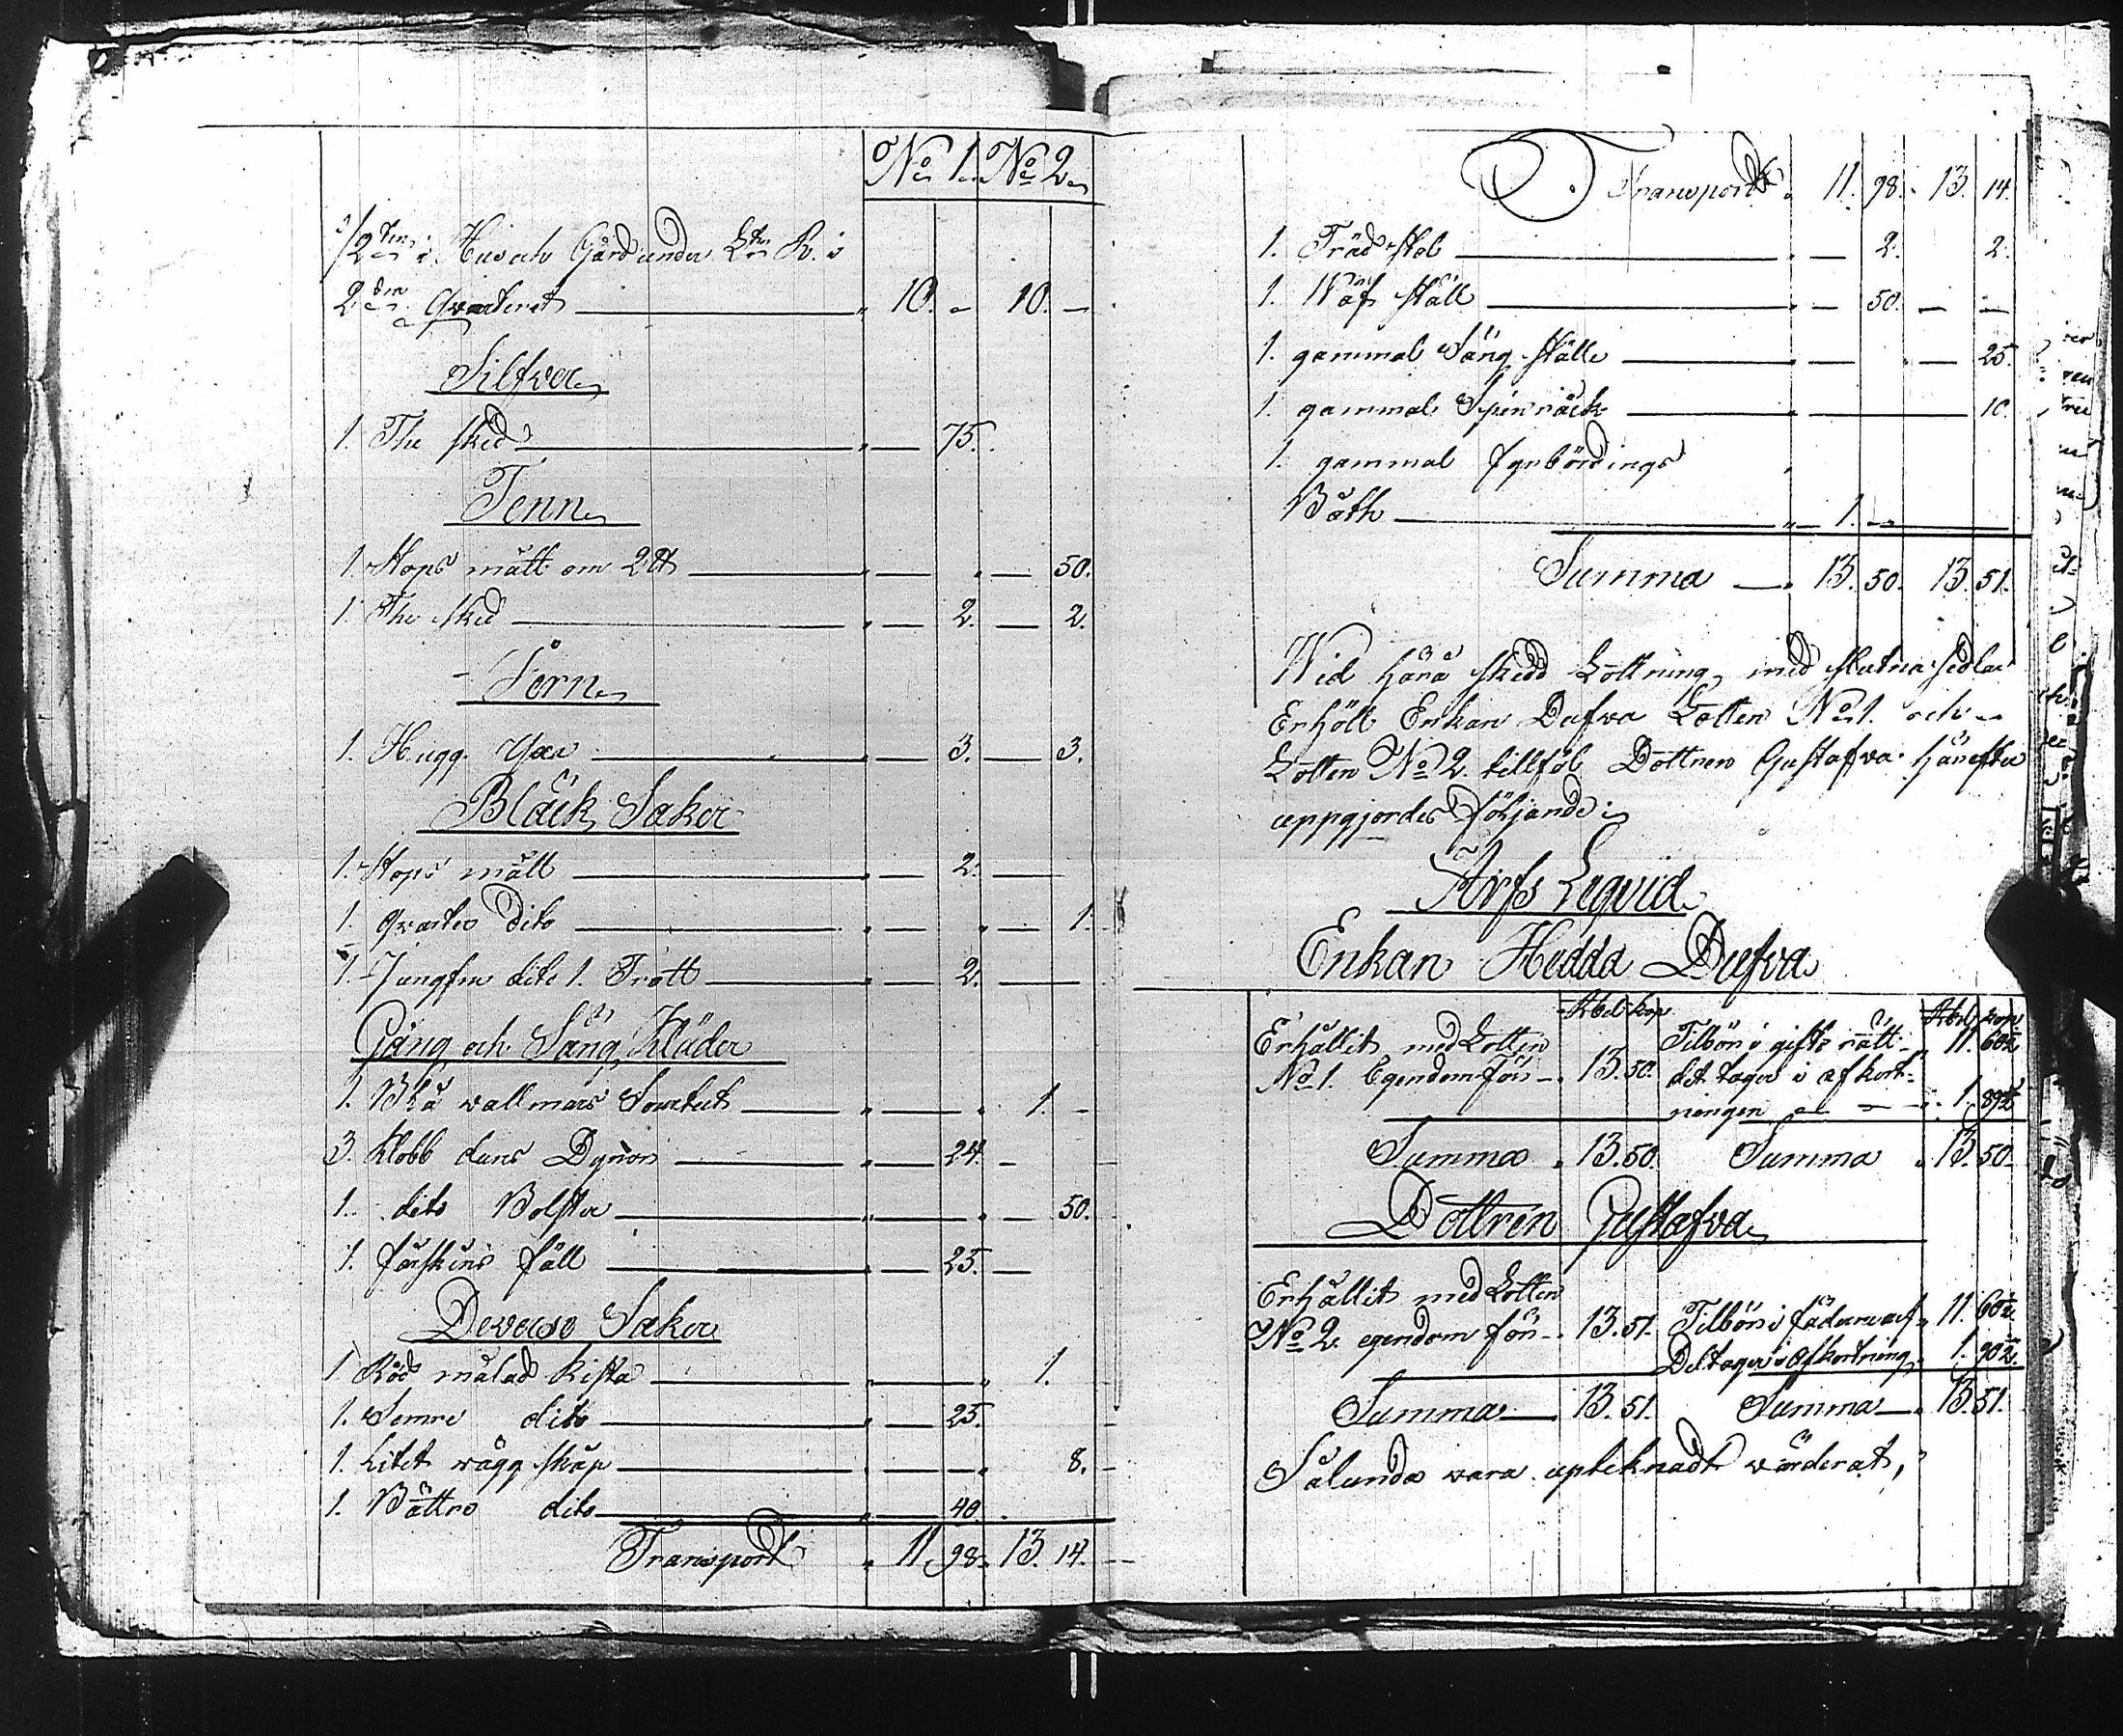 No 1. No 2.
1/2ten i Hus och Gård under Ltn R. i
2dra Qvarteret 10. - 10. -
Silfver
1. The sked 75.
Tenn
1. Stops mått om 2 ℔ 50.
1. The sked 2. 2.
Jern
1. Hugg Yxa 3. 3.
Bläck Saker
1. Stops mått 2.
1. qvarter dito 1.
1. Jungfru dito 1. Tratt 2.
Gång och Säng Kläder
1. Blå wallmars Sourtut 1. -
3. Klobb duns Dynor 24. -
1. dito Bolster 50.
1. fårskins fäll 25.
Deverse Saker
1 Röd målad kista 1.
1. Semre dito 25.
1. Litet wägg skåp 8.
1. Bättre dito 40.
Transport 11. 98. 13. 14.
Transport 11. 98. 13. 14.
1. Träd stol 2. 2.
1. Wäf ställ 50. - -
1. gammal Säng ställe 25.
1. gammal Spinråck 10.
1. gammal fyrbördings
Båth 1. -
Summa 13. 50. 13. 51.
Wid härå skedd Lottning, med slutna sedlar
Erhöll Enkan Dufva Lotten No 1. och
Lotten No 2. tillföl Dottren Gustafva härefter
uppgjordes följande:
Arfs Liqvid
Enkan Hedda Dufva
Rbel kop. Rbel kop.
Erhållit med Lotten Tilbör i gifto rätt 11. 60 1/2
No 1. Egendom för 13. 50. det tages i afkort-
ningen 1. 89 1/2
Summa 13. 50. Summa 13. 50.
Dottren Gustafva
Erhållit med Lotten
No 2. egendom för 13. 51. Tilbör i fäderne arf 11. 60 1/2
Det tages i afkortning 1. 90 1/2.
Summa 13. 51. Summa 13. 51.
Sålunda wara upteknadt wärderat,